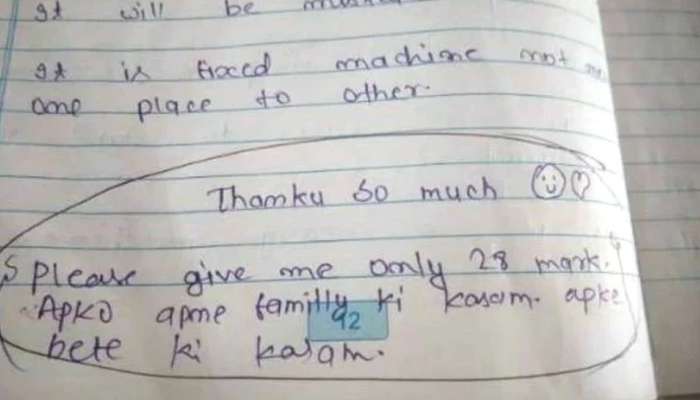 It will be
It is fixed machine not
one place to other.
Thanku so much
Please give me only 28 mark.
Apko apne familly ki kasam. apke
92
bete ki kasam.